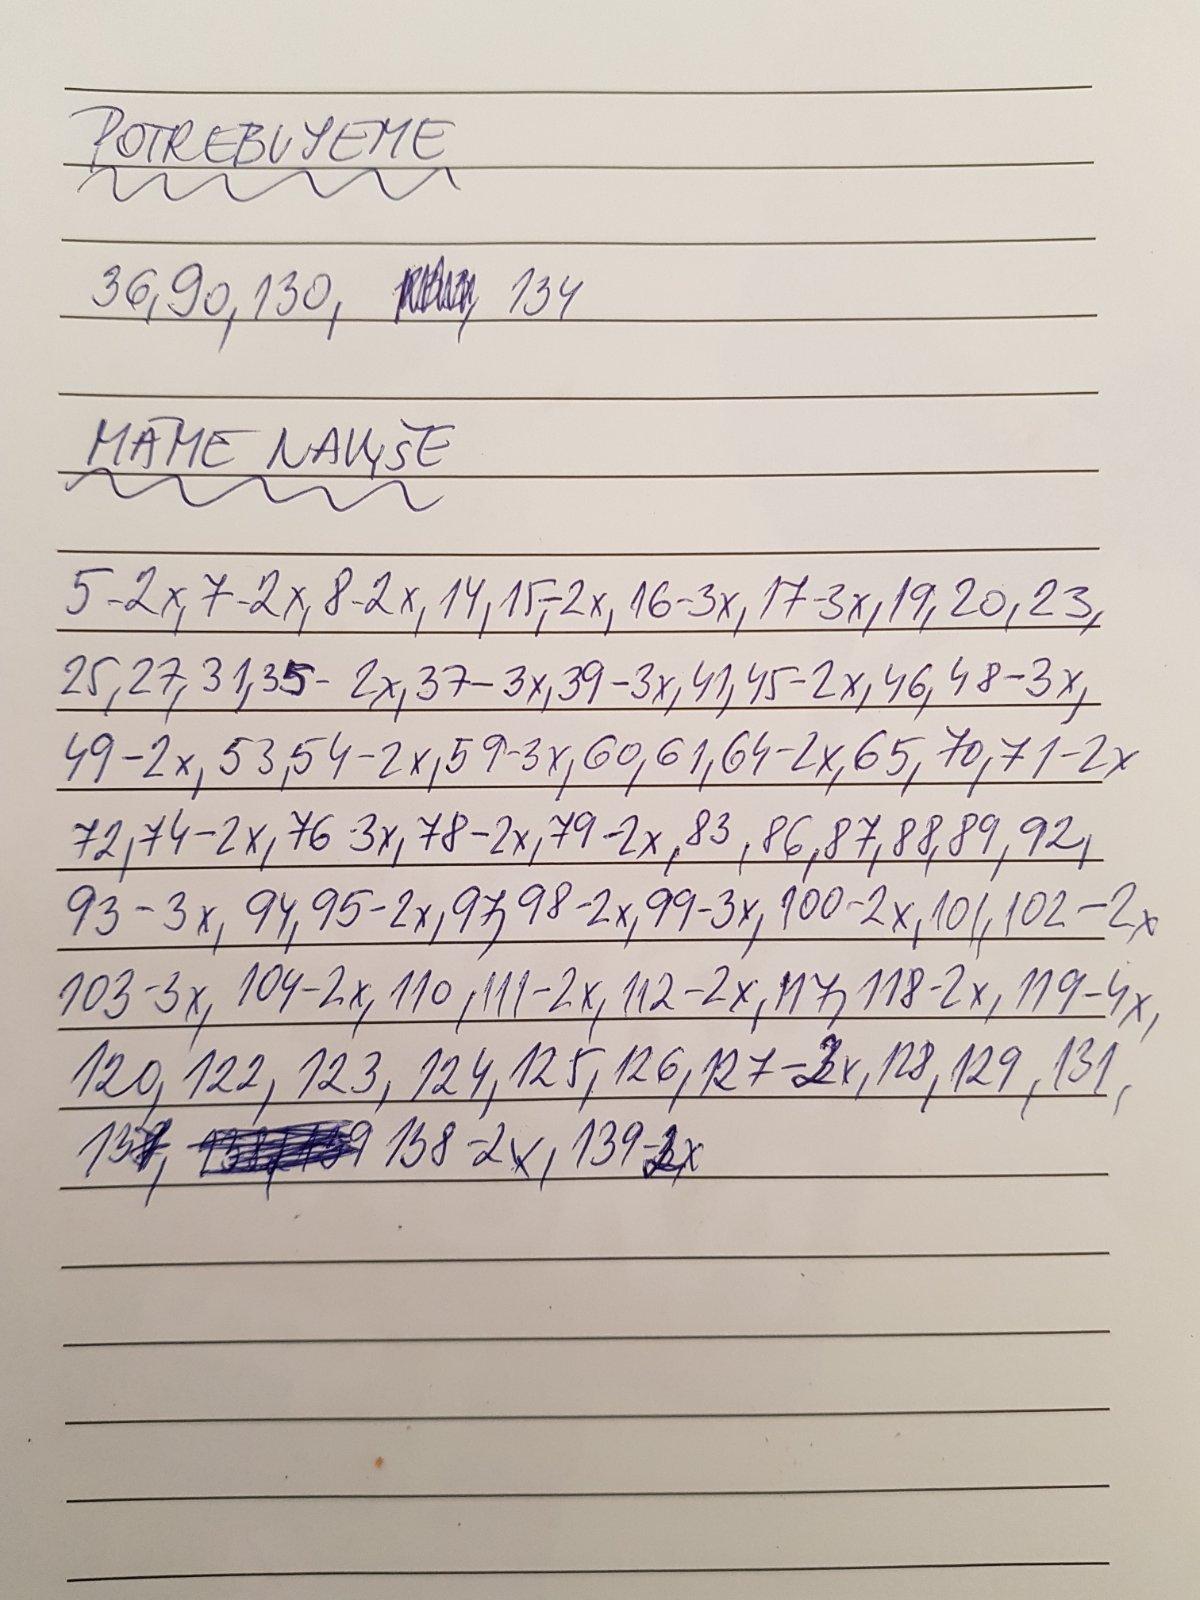 POTREBUJEME
36, 90, 130, 134
MÁME NAVYŠE
5-2x, 7-2x, 8-2x, 14, 15-2x, 16-3x, 17-3x, 19, 20, 23,
25, 27, 31, 35- 2x, 37-3x, 39-3x, 41, 45-2x, 46, 48-3x,
49-2x, 53, 54-2x, 59-3x, 60, 61, 64-2x, 65, 70, 71-2x
72, 74-2x, 76-3x, 78-2x, 79-2x, 83, 86, 87, 88, 89, 92,
93-3x, 94, 95-2x, 97, 98-2x, 99-3x, 100-2x, 101, 102-2x
103-3x, 104-2x, 110, 111-2x, 112-2x, 117, 118-2x, 119-4x,
120, 122, 123, 124, 125, 126, 127- 128, 129, 131,
138-2x, 139-